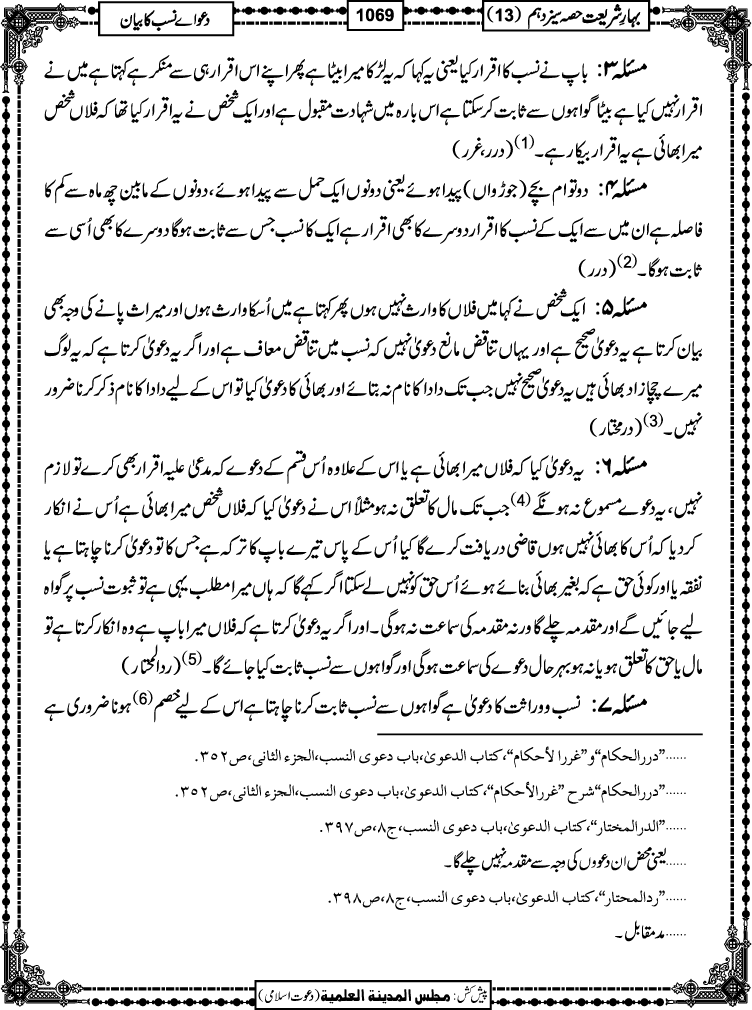 بہارِ شریعت حصہ سیزدہم (13)
1069
دعواے نسب کا بیان
مسئلہ ۳: باپ نے نسب کا اقرار کیا یعنی یہ کہا کہ یہ لڑکا میرا بیٹا ہے پھر اپنے اس اقرار ہی سے منکر ہے کہتا ہے میں نے
اقرار نہیں کیا ہے بیٹا گواہوں سے ثابت کرسکتا ہے اس بارہ میں شہادت مقبول ہے اور ایک شخص نے یہ اقرار کیا تھا کہ فلاں شخص
میرا بھائی ہے یہ اقرار بیکار ہے۔(1) (درر، غرر)
مسئلہ ۴: دو توام بچے (جوڑواں) پیدا ہوئے یعنی دونوں ایک حمل سے پیدا ہوئے، دونوں کے مابین چھ ماہ سے کم کا
فاصلہ ہے ان میں سے ایک کے نسب کا اقرار دوسرے کا بھی اقرار ہے ایک کا نسب جس سے ثابت ہوگا دوسرے کا بھی اُسی سے
ثابت ہوگا۔(2) (درر)
مسئلہ ۵: ایک شخص نے کہا میں فلاں کا وارث نہیں ہوں پھر کہتا ہے میں اُسکا وارث ہوں اور میراث پانے کی وجہ بھی
بیان کرتا ہے یہ دعویٰ صحیح ہے اور یہاں تناقض مانع دعویٰ نہیں کہ نسب میں تناقض معاف ہے اور اگر یہ دعویٰ کرتا ہے کہ یہ لوگ
میرے چچازاد بھائی ہیں یہ دعویٰ صحیح نہیں جب تک دادا کا نام نہ بتائے اور بھائی کا دعویٰ کیا تو اس کے لیے دادا کا نام ذکر کرنا ضرور
نہیں۔(3) (درمختار)
مسئلہ ۶: یہ دعویٰ کیا کہ فلاں میرا بھائی ہے یا اس کے علاوہ اُس قسم کے دعوے کہ مدعیٰ علیہ اقرار بھی کرے تو لازم
نہیں، یہ دعوے مسموع نہ ہونگے(4) جب تک مال کا تعلق نہ ہو مثلاً اس نے دعویٰ کیا کہ فلاں شخص میرا بھائی ہے اُس نے انکار
کردیا کہ اُس کا بھائی نہیں ہوں قاضی دریافت کرے گا کیا اُس کے پاس تیرے باپ کا ترکہ ہے جس کا تو دعویٰ کرنا چاہتا ہے یا
نفقہ یا اور کوئی حق ہے کہ بغیر بھائی بنائے ہوئے اُس حق کو نہیں لے سکتا اگر کہے گا کہ ہاں میرا مطلب یہی ہے تو ثبوت نسب پر گواہ
لیے جائیں گے اور مقدمہ چلے گا ورنہ مقدمہ کی سماعت نہ ہوگی۔ اور اگر یہ دعویٰ کرتا ہے کہ فلاں میرا باپ ہے وہ انکار کرتا ہے تو
مال یا حق کا تعلق ہو یا نہ ہو بہر حال دعوے کی سماعت ہوگی اور گواہوں سے نسب ثابت کیا جائے گا۔(5) (ردالمحتار)
مسئلہ ۷: نسب و وراثت کا دعویٰ ہے گواہوں سے نسب ثابت کرنا چاہتا ہے اس کے لیے خصم(6) ہونا ضروری ہے
......”دررالحکام“ و ”غررا لأحکام“، کتاب الدعویٰ، باب دعوی النسب، الجزء الثانی، ص۳۵۲.
......”دررالحکام“ شرح ”غررالأحکام“، کتاب الدعویٰ، باب دعوی النسب، الجزء الثانی، ص۳۵۲.
......”الدرالمختار“، کتاب الدعویٰ، باب دعوی النسب، ج۸، ص۳۹۷.
......یعنی محض ان دعووں کی وجہ سے مقدمہ نہیں چلے گا۔
......”ردالمحتار“، کتاب الدعویٰ، باب دعوی النسب، ج۸، ص۳۹۸.
......مدمقابل۔
پیش کش: مجلس المدینة العلمیة (دعوت اسلامی)